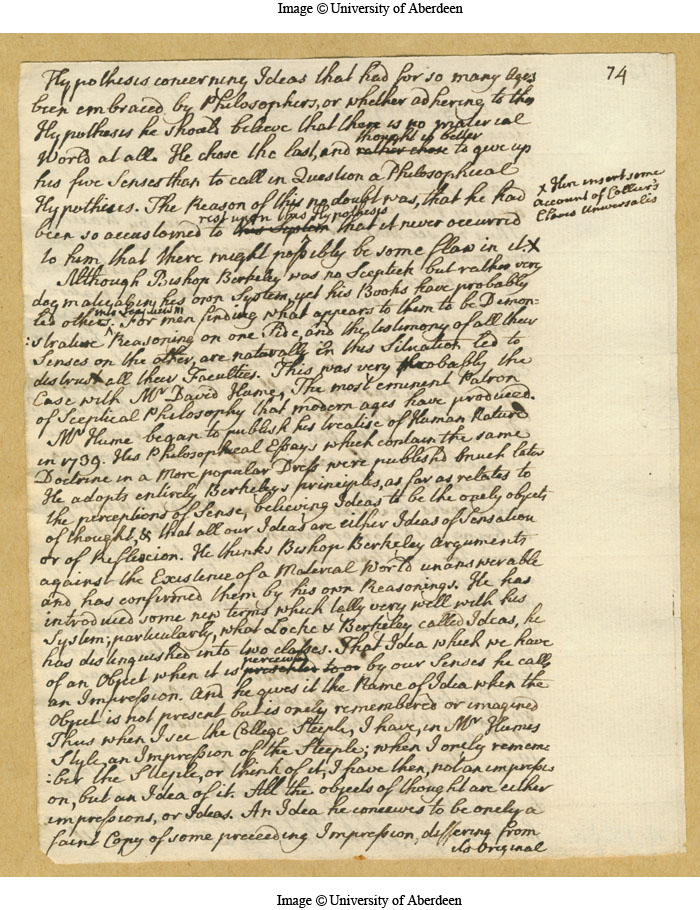 Image © University of Aberdeen
74
Hypothesis concerning Ideas that had for so many Ages
been embraced by Philosophers, or whether adhering to this
Hypothesis he should believe that there is no material
World at all. He chose the last, and rather chose to give up
thought it better
his five Senses than to call in Question a Philosophical
Hypothesis. The Reason of this no doubt was, that he had
been so accustomed to this System that it never occurred
rest upon this Hypothesis
to him that there might possibly be some flaw in it. x
x Here insert some
account of Collier's
Clavis Universalis
Although Bishop Berkeley was no Sceptick but rather very
dogmatical in his own System, yet his Books have probably
led others. For men finding what appears to them to be Demon=
into Scepticism
:strative Reasoning on one side, and the testimony of all their
Senses on the other, are naturally in this Situation led to
distrust all their Faculties. This was very probably the
Case with Mr David Hume, The most eminent Patron
of Sceptical Philosophy that modern ages have produced.
Mr Hume began to publish his treatise of Human Nature
in 1739. His Philosophical Essays which contain the same
Doctrine in a More popular Dress were published much later
He adopts entirely Berkeleys principles, as far as relates to
the perceptions of Sense, believing Ideas to be the onely objects
of thought, & that all our Ideas are either Ideas of Sensation
or of Reflexion. He thinks Bishop Berkeley Arguments
against the Existence of a Material World unanswerable
and has confirmed them by his own Reasonings. He has
introduced some new terms which tally very well with his
System; particularly, what Locke & Berkeley called Ideas, he
has distinguished into two classes. That Idea which we have
of an Object when it is presented to or by our Senses he calls
perceived
an Impression. And he gives it the Name of Idea when the
Object is not present but is onely remembered or imagined
Thus when I see the College Steeple, I have, in Mr Humes
Style, an Impression of the Steeple; when I onely remem=
:ber the Steeple, or think of it, I have then, not an impressi
on, but an Idea of it. All the objects of thought are either
impressions, or Ideas. An Idea he conceives to be onely a
faint Copy of some preceeding Impression, differing from
its Original
Image © University of Aberdeen